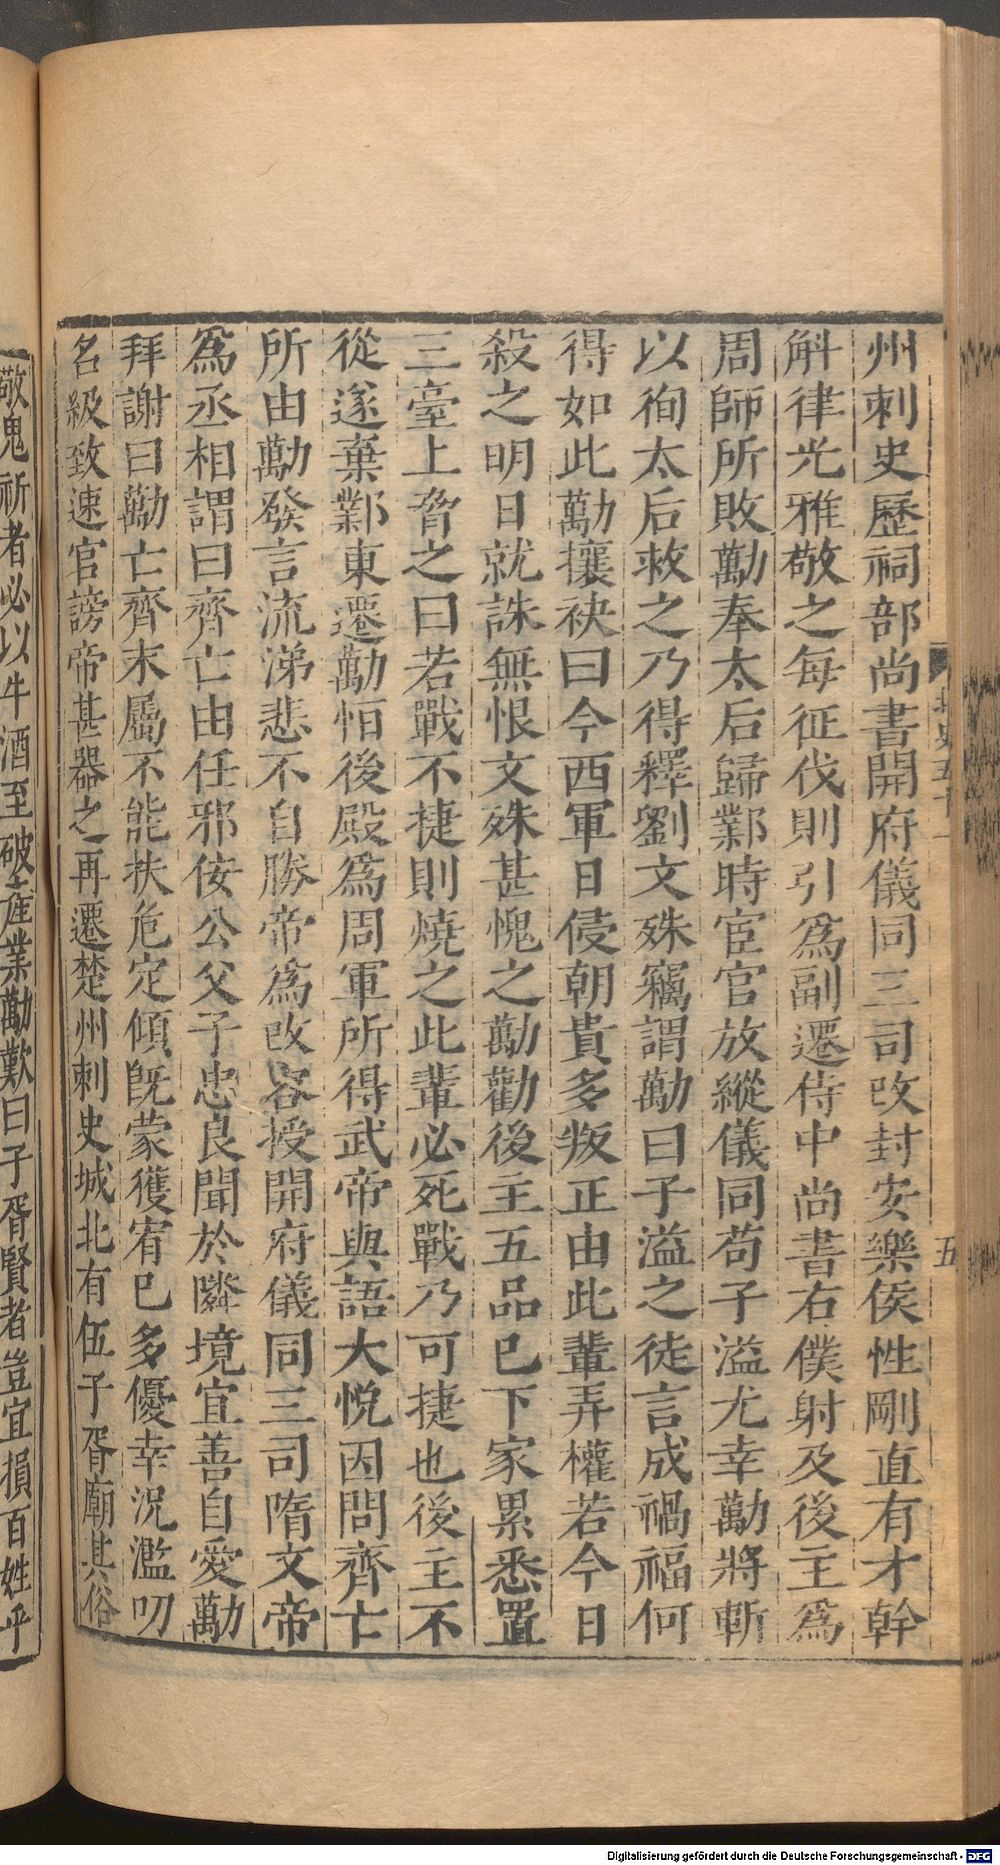 州刺史歷祠部尚書開府儀同三司改封安樂侯性剛直有才幹
斛律光雅敬之每征伐則引爲副遷侍中尚書右僕射及後主爲
周師所敗勱奉太后歸鄴時宦官放縱儀同苟子溢尤幸勱將斬
以徇太后救之乃得釋劉文殊竊謂勱曰子溢之徒言成禍福何
得如此勱攘袂曰今西軍日侵朝貴多叛正由此輩弄權若今日
殺之明日就誅無恨文殊甚愧之勱勸後主五品已下家累悉置
三臺上脅之曰若戰不捷則燒之此輩必死戰乃可捷也後主不
從遂棄鄴東遷勱恒後殿爲周軍所得武帝與語大悅因問齊亡
所由勱發言流涕悲不自勝帝爲改容授開府儀同三司隋文帝
爲丞相謂曰齊亡由任邪佞公父子忠良聞於隣境宜善自愛勱
拜謝曰勱亡齊末屬不能扶危定傾旣蒙獲宥已多優幸況濫叨
名級致速官謗帝甚器之再遷楚州刺史城北有伍子胥廟其俗
敬鬼祈者必以牛酒至破産業勱歎曰子胥賢者豈宜損百姓乎
五
Digitalisierung gefördert durch die Deutsche Forschungsgemeinschaft - DFG